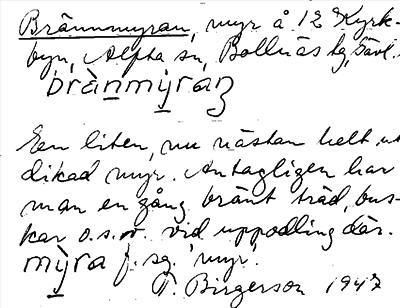 Brännmyran, myr å 12 Kyrk-
byn, Alfta sn, Bollnäs tg, Gävl.
bràn̲my̲ran
En liten, nu nästan helt ut
dikad myr. Antagligen har
man en gång bränt träd, bus-
kar o.s.v. vid uppodling där.
mỳ̲ra f. sg. 'myr'.
T. Birgerson 1947